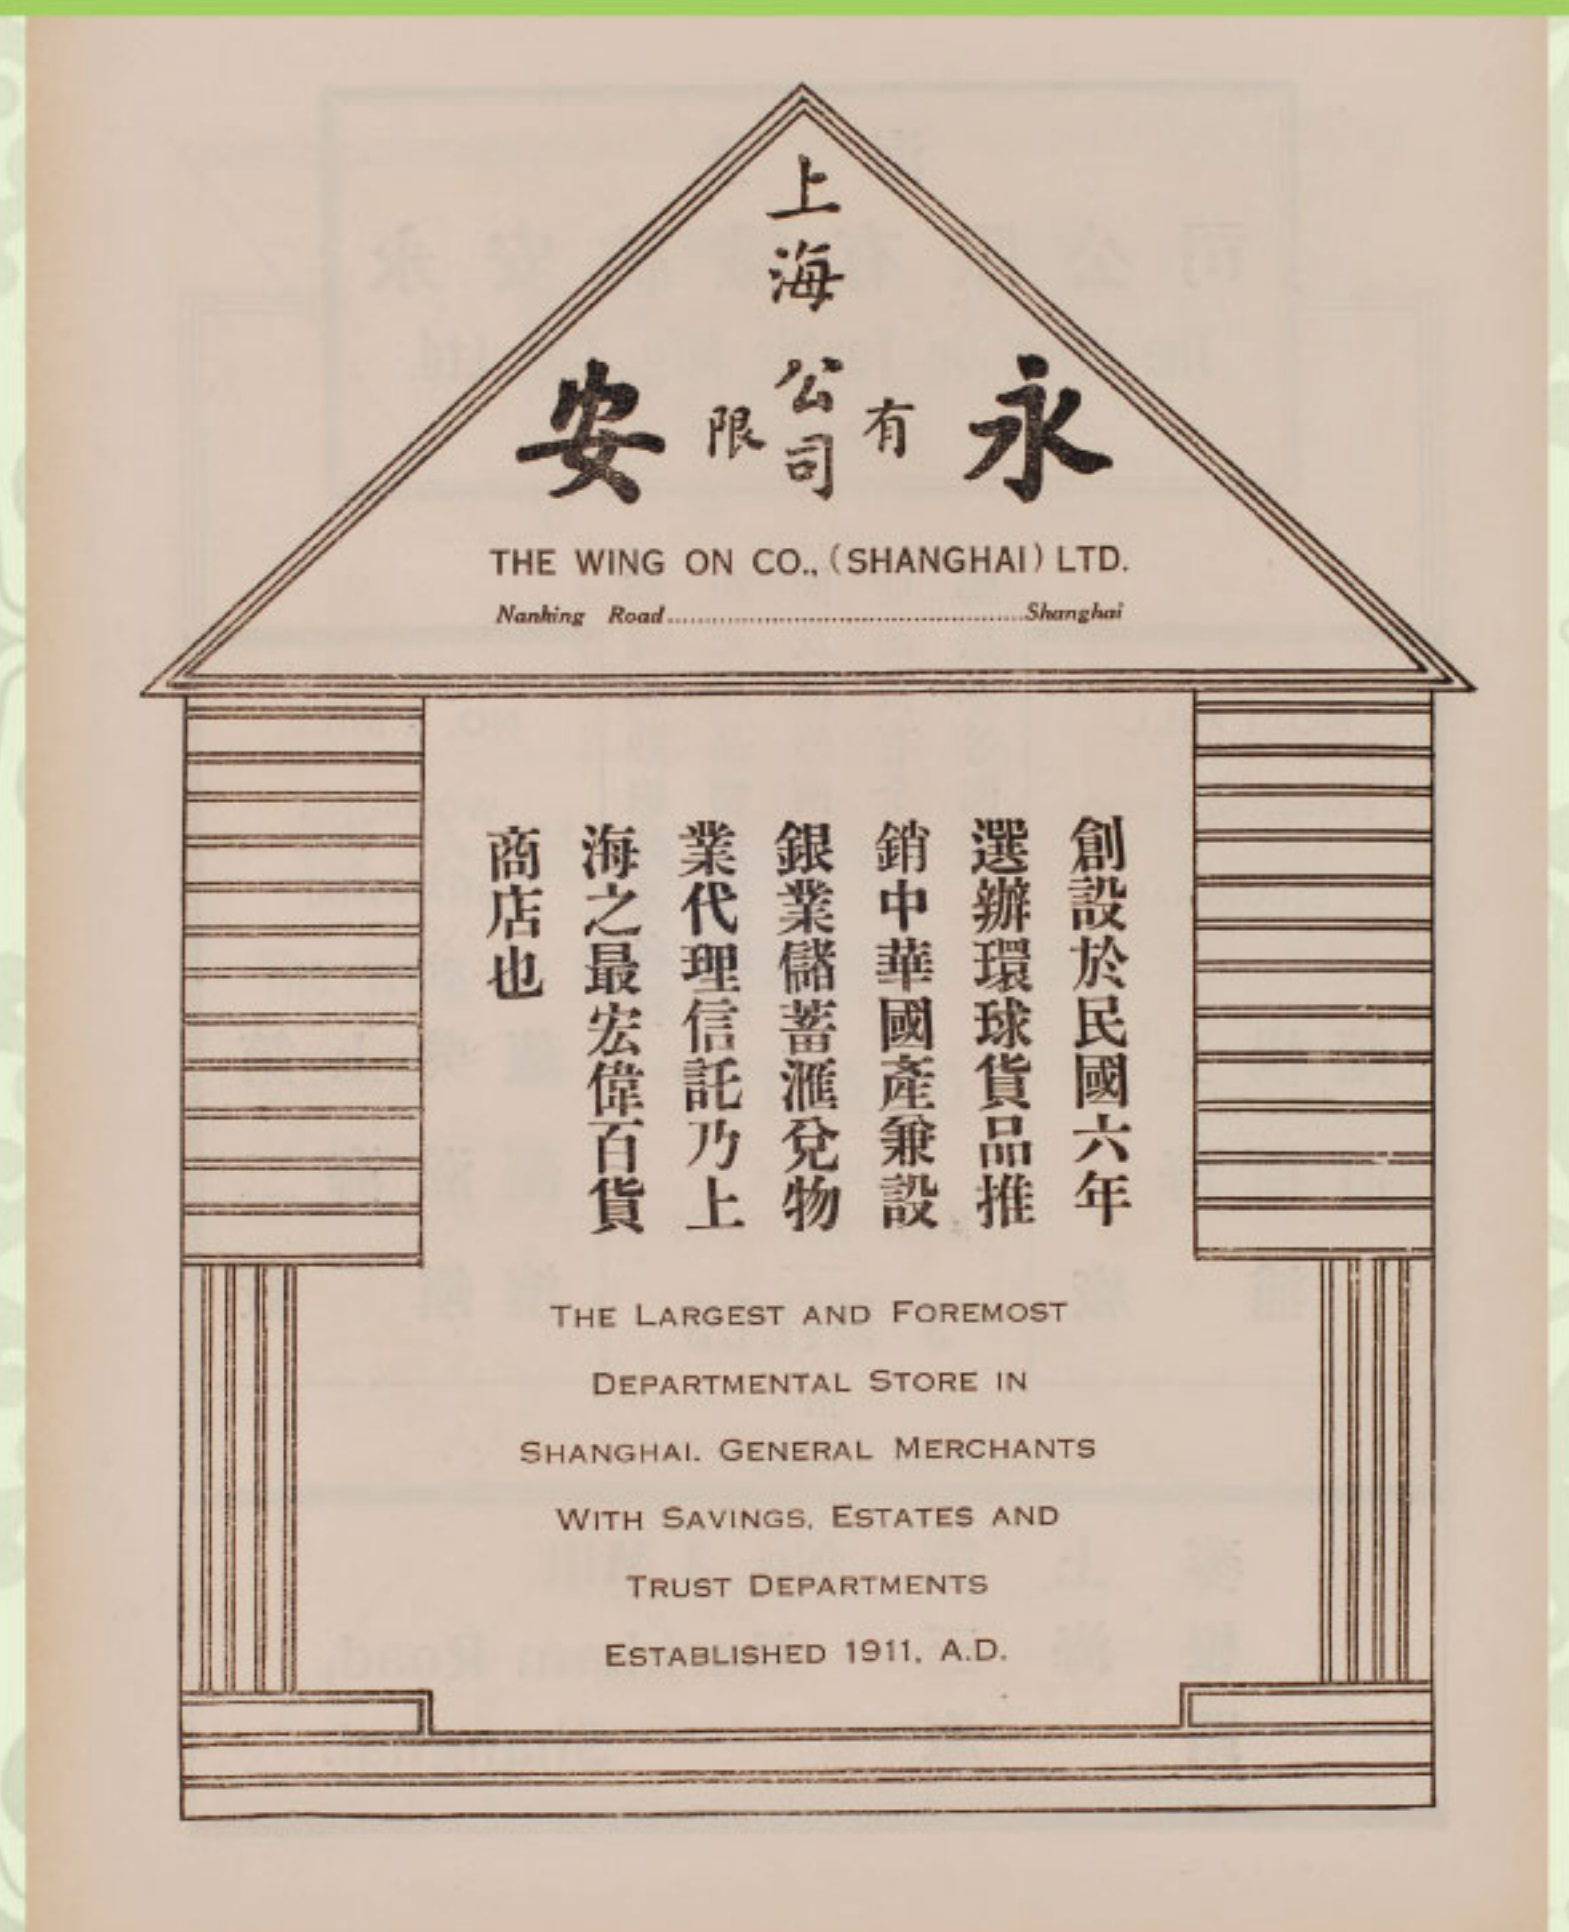 上海
永安
有限
公司
THE WING ON CO., (SHANGHAI) LTD.
Nanking Road......................................................Shanghai
創設於民國六年
選辦環球貨品推
銷中華國產兼設
銀業儲蓄滙兌物
業代理信託乃上
海之最宏偉百貨
商店也
THE LARGEST AND FOREMOST
DEPARTMENTAL STORE IN
SHANGHAI. GENERAL MERCHANTS
WITH SAVINGS, ESTATES AND
TRUST DEPARTMENTS
ESTABLISHED 1911, A.D.